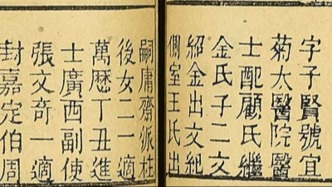 字賢號宜
菊太醫院醫
士配顧氏繼
金氏子二文
紹金出文紀
側室王氏出
嗣庸齋派柱
後女二一適
萬歷丁丑進
士廣西副使
張文奇一適
封嘉定伯周